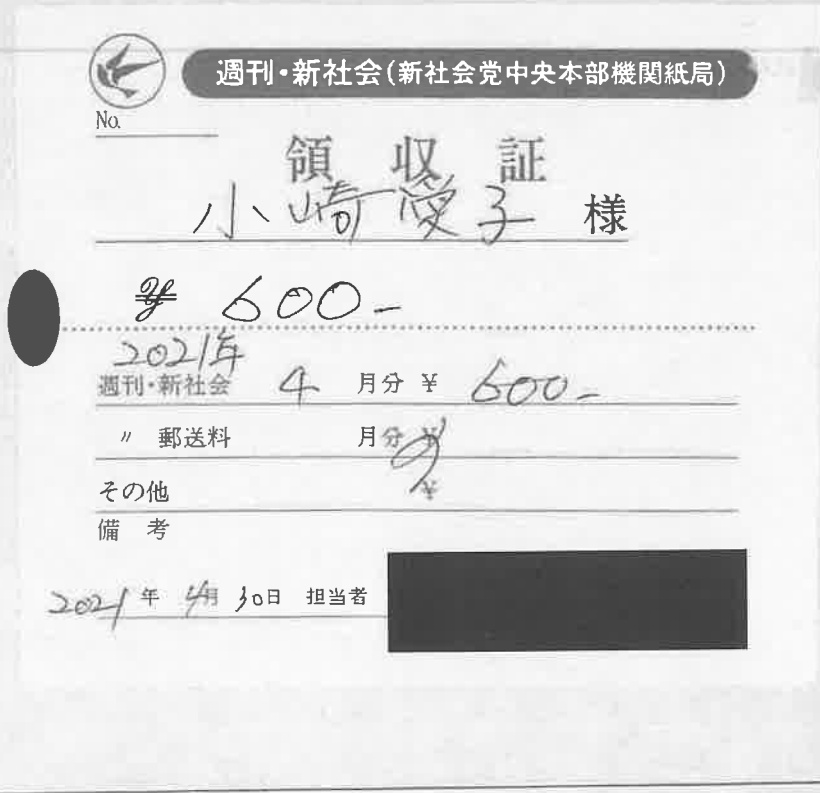 週刊・新社会(新社会党中央本部機関紙局)
No.
領収証
小崎愛子 様
¥ 600-
2021年
週刊・新社会 4 月分 ¥ 600-
〃 郵送料 月分 ¥
その他 ¥
備考
2021年 4月 30日 担当者